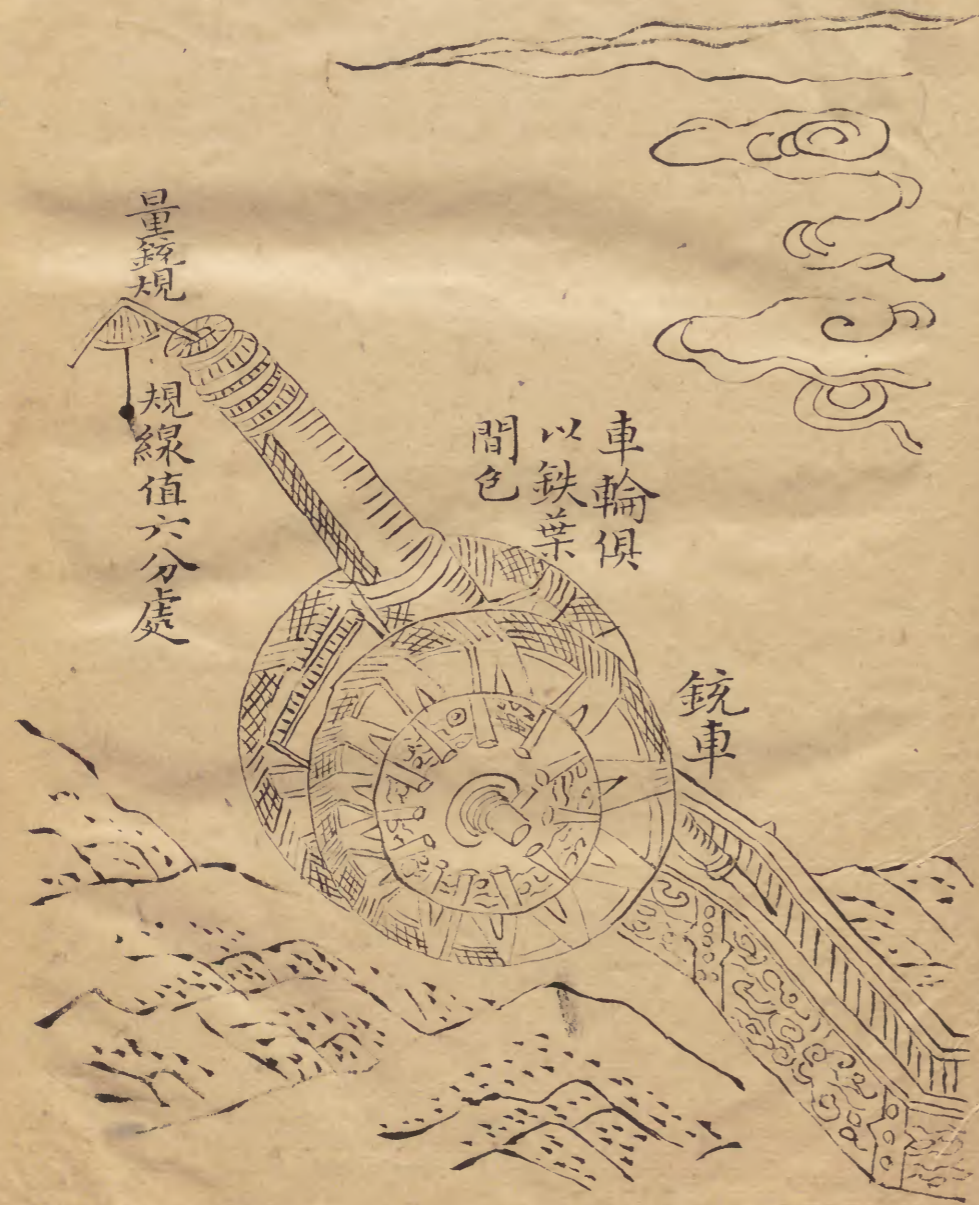 銃車
車輪俱
以鉄葉
間色
量銃規
規線值六分處